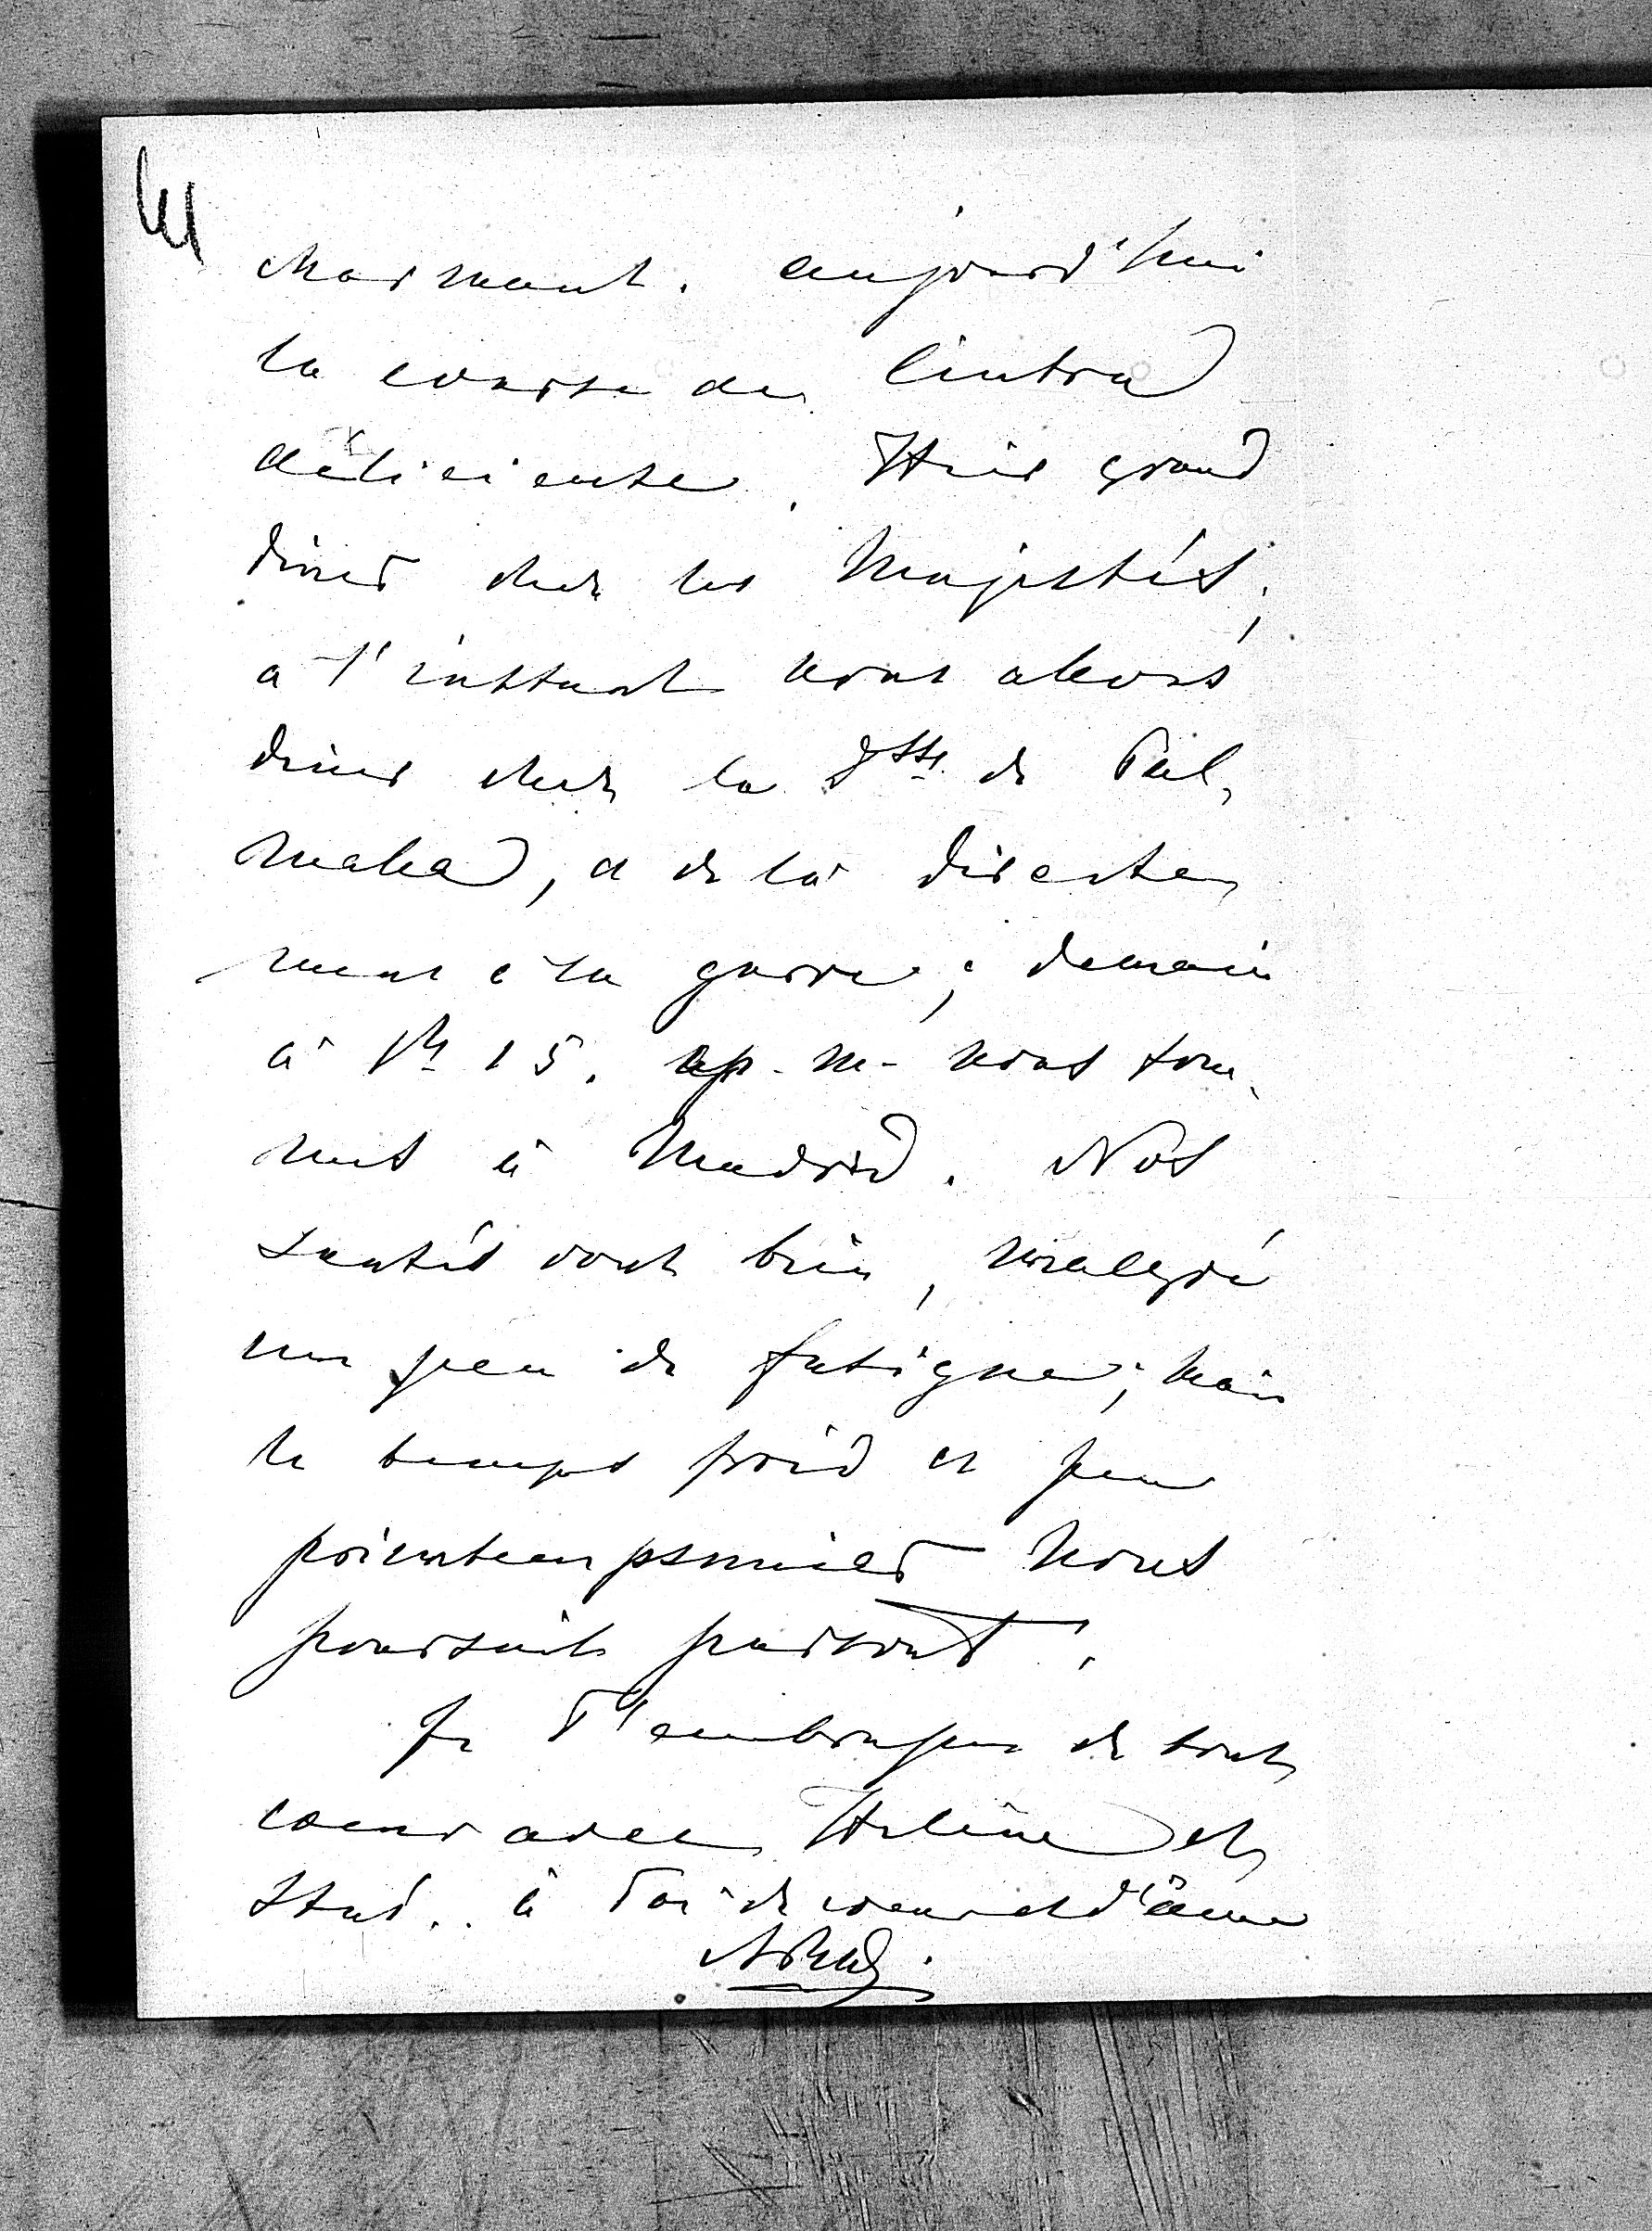 charmant. aujourd'hui
la course de Cintra
délicieuse. Hier grand
dîner chez les Majestés,
à l'instant nous allons
dîner chez la Dsse de Pal-
mella, et de là directe-
ment à la garre; demain
à 1h 15. ap-m- nous som-
mes à Madrid. Nos
santés vont bien, malgré
un peu de fatigue; mais
le temps froid et peu
printempsnier nous
poursuit partout.
Je T'embrasse de tout
coeur avec Hélène et
Stus.. à Toi de coeur et d'âme